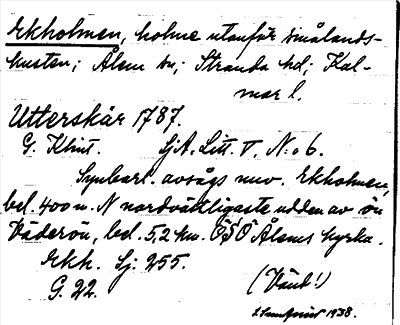 Ekholmen, holme utanför smålands-
kusten; Ålem sn; Stranda hd; Kal-
mar l.
Utterskär 1787.
G. Klint. Sj.A. Litt. V. N:o 6.
Synbarl. avsågs nuv. Ekholmen,
bel. 400 m. N nordvästligaste udden av ön
Väderön, bel. 5,2 km. ÖSÖ Ålems kyrka.
Ekh. Sj: 255.
G. 22.
(Vänd!)
1938.